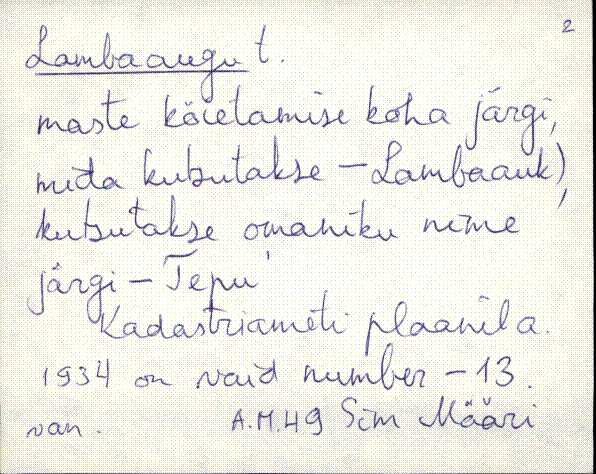 2
Lambaaugu t.
maste köietamise koha järgi,
mida kutsutakse - Lambaauk),
kutsutakse omaniku nime
järgi - Tepu
Kadastriameti plaanil a.
1934 on vaid number - 13.
van. A.M.49 Sim Määri